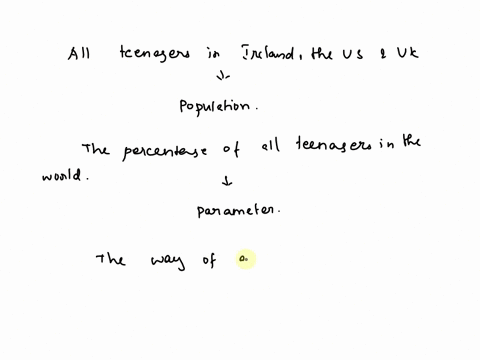 All teenagers in Ireland, the US & UK
Population.
The percentage of all teenagers in the
world.
parameter.
The way of a